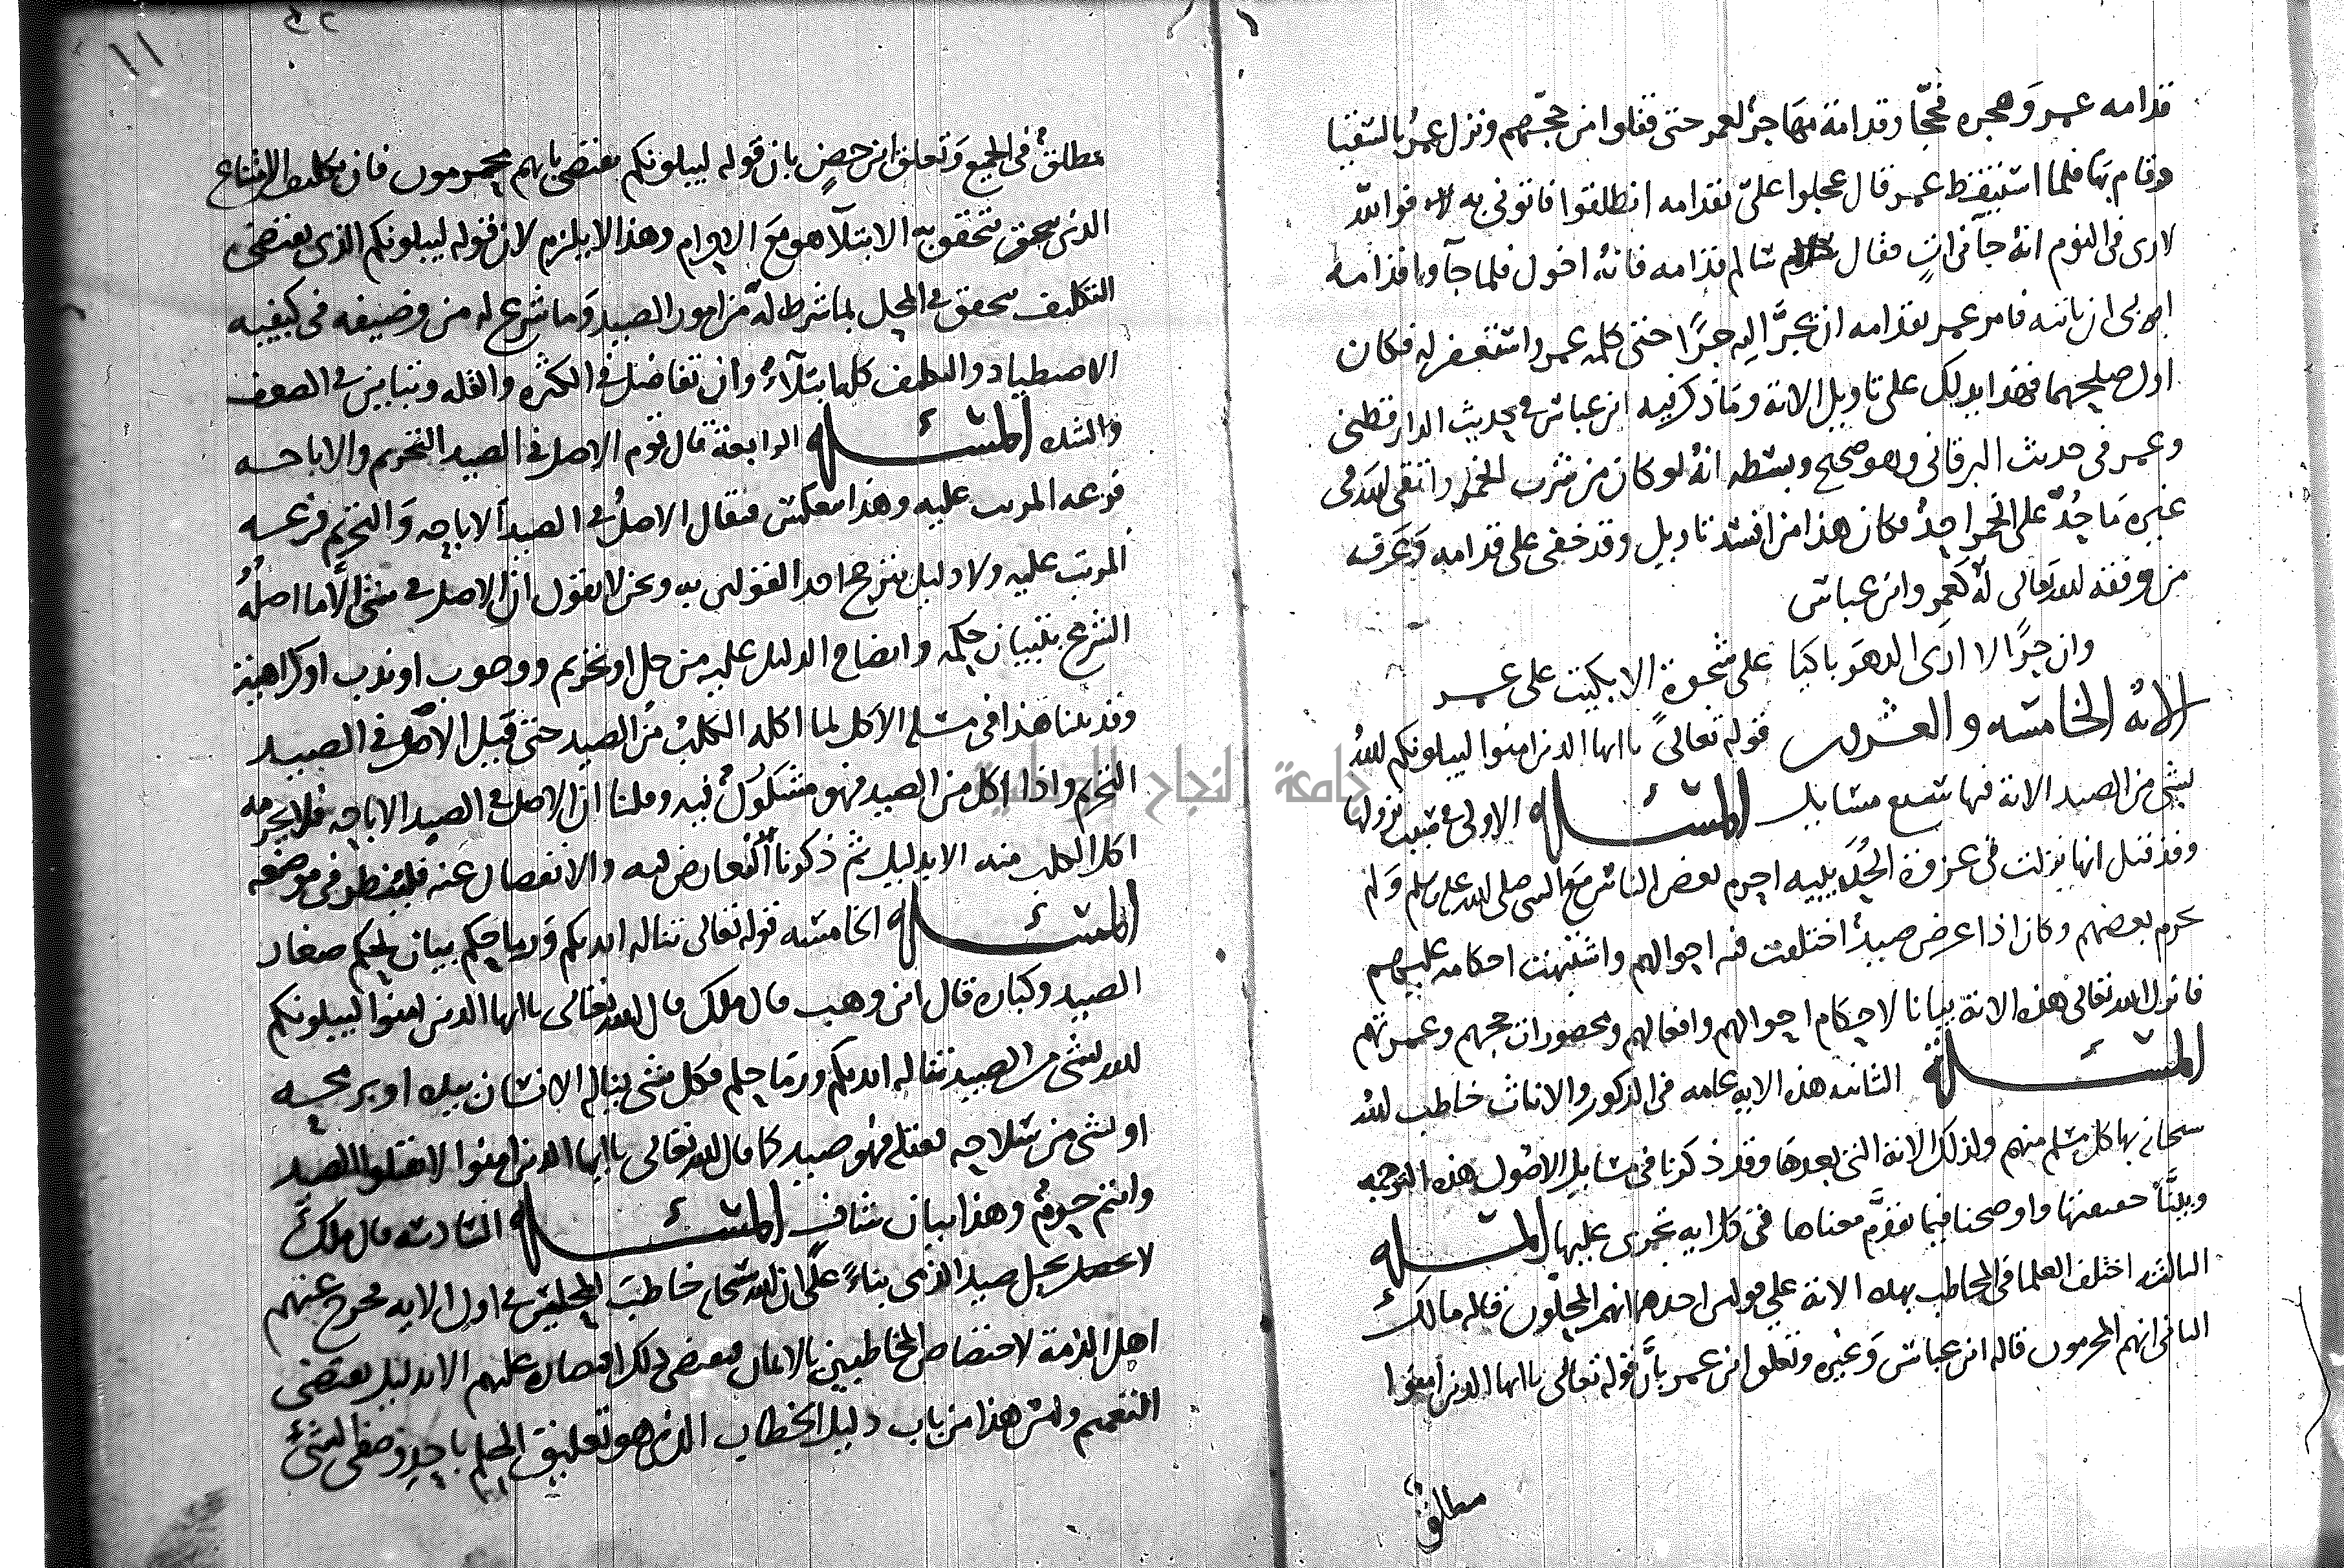 قدامه عمر وهجره فحجّا وقدامة مهاجر لعمر حتى قفلوا من حجهم ونزل عمر بالسقيا
ونام بها فلما استيقظ عمر قال عجلوا علىّ بقدامه انطلقوا فاتونى به فوالله
لارى فى النوم انه جآنى اتٍ فقال سالم قدامه فانه اخوك فلما جآوا قدامه
ابى ان ياتيه فامر عمر بقدامه ان يجرّ اليه جرًا حتى كلمه عمر واستغفر له فكان
اول صلحهما فهذا يدلك على تاويل الاية وما ذكر فيه ابن عباس فى حديث الدارقطنى
وعمر فى حديث البرقانى وهو صحيح وبسطه انه لو كان من شرب الخمر واتقى الله فى
غيره ما حُدّ على الخمر احدٌ فكان هذا من افسد تاويل وقد خفى على قدامه وعرفه
من وفقه الله تعالى له كعمر وابن عباس
وان حرًا لا ارى الدهر باكيا على شجوة الا بكيت على عمر
الاية الخامسه والعشرون قوله تعالى ياايها الذين امنوا ليبلونكم الله
بشى من الصيد الاية فيها تسع مسايل المسئله الاولى فى سبب نزولها
وقد قيل انها نزلت فى غزوة الحديبيه احرم بعض الناس مع النبى صلى الله عليه وسلم ولم
يحرم بعضهم وكان اذا عرض صيدٌ اختلفت فيه احوالهم واشتبهت احكامه عليهم
فانزل الله تعالى هذه الاية بيانا لاحكام احوالهم وافعالهم ومحضورات حجهم وعمرتهم
المسئلة الثانيه هذه الايه عامه فى الذكور والاناث خاطب الله
سبحانه بها كل مسلم منهم ولذلك الاية التى بعدها وقد ذكرنا فى مسايل الاصول هذه الترجمه
وبينّا حقيقتها واوضحنا فيما تقدّم معناها فى كل ايه تجرى عليها المسئله
الثالثه اختلف العلما فى المخاطب بهذه الاية على قولين احدهما انهم المحلّون قاله مالك
الثانى انهم المحرمون قاله ابن عباس وغيره وتعلق ابن عمر بأن قوله تعالى ياايها الذين امنوا
مطلق
١١
مطلقٌ فى الجميع وتعلق ابن حصن بان قوله ليبلونكم يقتضى بانهم محرمون فان تكليف الامتناع
الذى يتحقق به الابتلآ هو مع الاحرام وهذا لا يلزم لان قوله ليبلونكم الذى يقتضى
التكليف يتحقق فى المحل بما شرط له من امور الصيد وما شرع له من وضيفه فى كيفيه
الاصطياد والتكليف كله ابتلآءٌ وان تفاضل فى الكثره والقله وتباين فى الضعف
والشده المسئله الرابعة قال قوم الاصل فى الصيد التحريم والاباحه
فرعه المرتب عليه وهذا معكس فيقال الاصلُ فى الصيد الاباحه والتحريم فرعه
المرتب عليه ولا دليل يترجح احد القولين به ونحن لا نقول ان الاصل فى شىء الّا ما اصلهُ
الشرع بتبيان حكمه وايضاح الدليل عليه من حل او تحريم ووجوب او ندب او كراهية
وقد بينا هذا فى مسئلة الاكل لما اكله الكلبُ من الصيد حتى قيل الاصل فى الصيد
التحريم واذا اكل من الصيد فهو مشكوكٌ فيه وقلنا ان الاصل فى الصيد الاباحه فلا يحرمه
اكل الكلب منه الا بدليل ثم ذكرنا التعارض فيه والانفصال عنه فلينظر فى موضعه
المسئله الخامسه قوله تعالى تناله ايديكم ورماحكم بيان لحكم صغار
الصيد وكباره قال ابن وهب قال ملك قال الله تعالى ياايها الذين امنوا ليبلونكم
الله بشى من الصيد تناله ايديكم ورماحكم فكل شى يناله الانسان بيده او برمحه
او بشى من سلاحه فقتله فهو صيد كما قال الله تعالى ياايها الذين امنوا لا تقتلوا الصيد
وانتم حرمٌ وهذا بيان شاف المسئله السادسه قال ملك
لا يحل صيد الذمى بناءً على ان الله سبحانه خاطب المحلين فى اول الايه فخرج عنهم
اهل الذمة لاختصاص المخاطبين بالايمان فيقتضى ذلك اقتصاره عليهم الا بدليل يقتضى
التعميم وليس هذا من باب دليل الخطاب الذى هو تعليق الحكم باحد وصفى الشىء
جامعة النجاح الوطنية